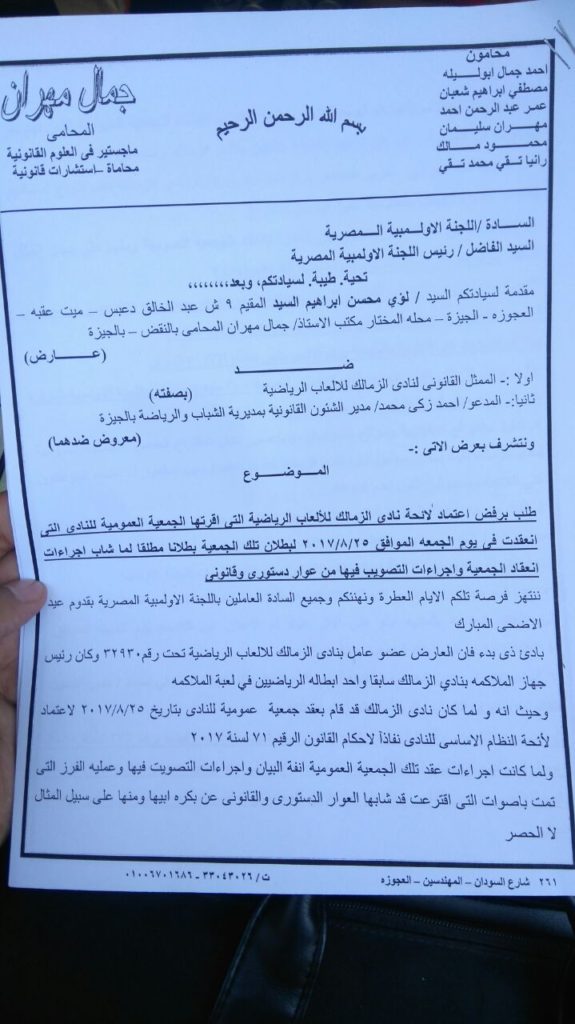 محامون
احمد جمال ابوليله
مصطفي ابراهيم شعبان
عمر عبد الرحمن احمد
مهران سليمان
محمود مالك
رانيا تقي محمد تقي
بسم الله الرحمن الرحيم
جمال مهران
المحامى
ماجستير فى العلوم القانونية
محاماة - استشارات قانونية
السادة /اللجنة الاولمبية المصرية
السيد الفاضل / رئيس اللجنة الاولمبية المصرية
تحية. طيبة. لسيادتكم، وبعد،،،،،،،،
مقدمة لسيادتكم السيد / لؤي محسن ابراهيم السيد المقيم ٩ ش عبد الخالق دعبس – ميت عقبه –
العجوزه - الجيزة – محله المختار مكتب الاستاذ/ جمال مهران المحامى بالنقض – بالجيزة
(عارض)
ضد
اولا :- الممثل القانونى لنادى الزمالك للالعاب الرياضية (بصفته)
ثانيا:- المدعو/ احمد زكى محمد/ مدير الشئون القانونية بمديرية الشباب والرياضة بالجيزة
(معروض ضدهما)
ونتشرف بعرض الاتى :-
الموضوع
طلب برفض اعتماد لائحة نادى الزمالك للألعاب الرياضية التى اقرتها الجمعية العمومية للنادى التى
انعقدت فى يوم الجمعه الموافق ٢٠١٧/٨/٢٥ لبطلان تلك الجمعية بطلانا مطلقا لما شاب اجراءات
انعقاد الجمعية واجراءات التصويب فيها من عوار دستورى وقانونى
ننتهز فرصة تلكم الايام العطرة ونهنئكم وجميع السادة العاملين باللجنة الاولمبية المصرية بقدوم عيد
الاضحى المبارك
بادئ ذى بدء فان العارض عضو عامل بنادى الزمالك للالعاب الرياضية تحت رقم ٣٢٩٣٠ وكان رئيس
جهاز الملاكمه بنادي الزمالك سابقا واحد ابطاله الرياضيين في لعبة الملاكمه
وحيث انه و لما كان نادى الزمالك قد قام بعقد جمعية عمومية للنادى بتاريخ ٢٠١٧/٨/٢٥ لاعتماد
لائحة النظام الاساسى للنادى نفاذاً لاحكام القانون الرقيم ٧١ لسنة ٢٠١٧
ولما كانت اجراءات عقد تلك الجمعية العمومية انفة البيان واجراءات التصويت فيها وعمليه الفرز التى
تمت باصوات التى اقترعت قد شابها العوار الدستورى والقانونى عن بكره ابيها ومنها على سبيل المثال
لا الحصر
٢٦١ شارع السودان – المهندسين – العجوزه
ت / ٣٣٠٤٣٠٢٦ - ٠١٠٠٦٧٠١٦٨٦